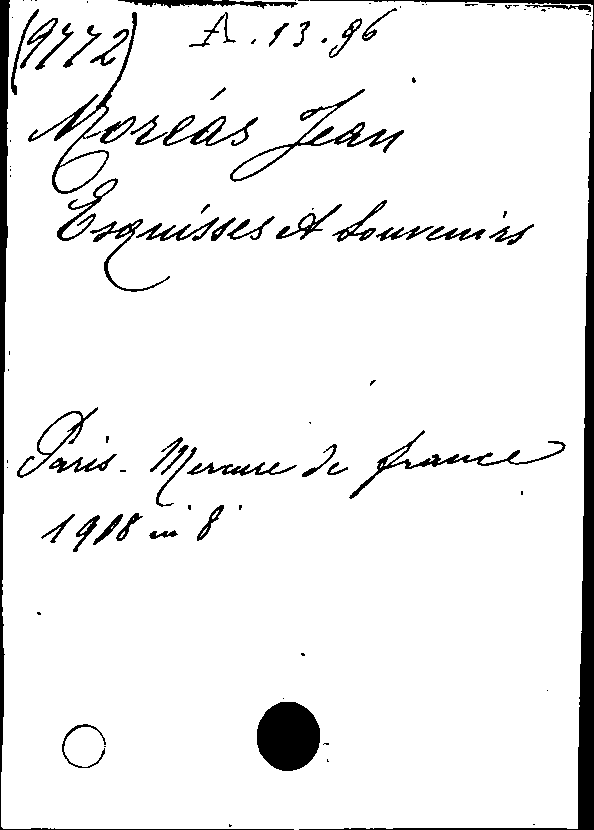 (9772) A.13.96
Moréas Jean
Esquisses et Souvenirs
Paris. Mercure de france
1908 in 8°